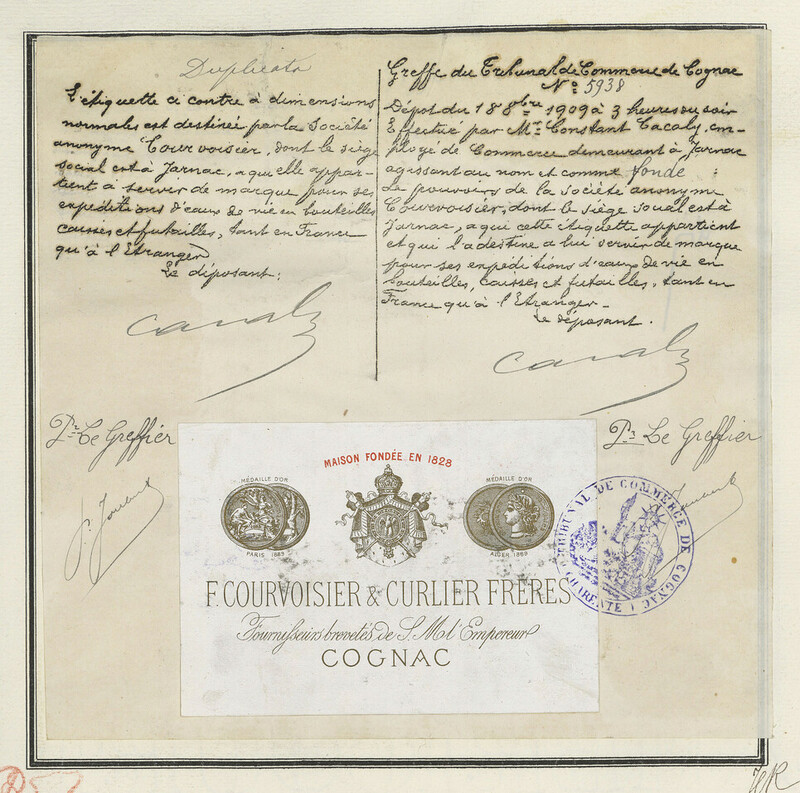 Duplicata
L'étiquette ci contre à dimensions
normales est destinée par la Société
anonyme Courvoisier, dont le siège
social est à Jarnac, a qu elle appar-
tient à servir de marque pour ses
expéditions d'eaux de vie en bouteilles
caisses et futailles, tant en France
qu'à l'Etranger
Le déposant:
Greffe du Tribunal de Commerce de Cognac
No 5938
Dépot du 18 8bre 1909 à 3 heures du soir
Effectué par Mr Constant Cacaly, em-
ployé de Commerce demeurant à Jarnac
agissant au nom et comme fondé
de pouvoirs de la Société anonyme
Courvoisier, dont le siège social est à
Jarnac, a qui cette étiquette appartient
et qui l'a destine a lui servir de marque
pour ses expéditions d'eaux de vie en
bouteilles, caisses et futailles, tant en
France qu'à l'Etranger-
Le déposant.
Pr Le Greffier
Pr Le Greffier
MAISON FONDÉE EN 1828
MÉDAILLE D'OR
MÉDAILLE D'OR
PARIS 1889
ALGER 1889
F. COURVOISIER & CURLIER FRÈRES
Fournisseurs brevetés de S. M. l'Empereur
COGNAC
TRIBUNAL DE COMMERCE DE COGNAC
CHARENTE